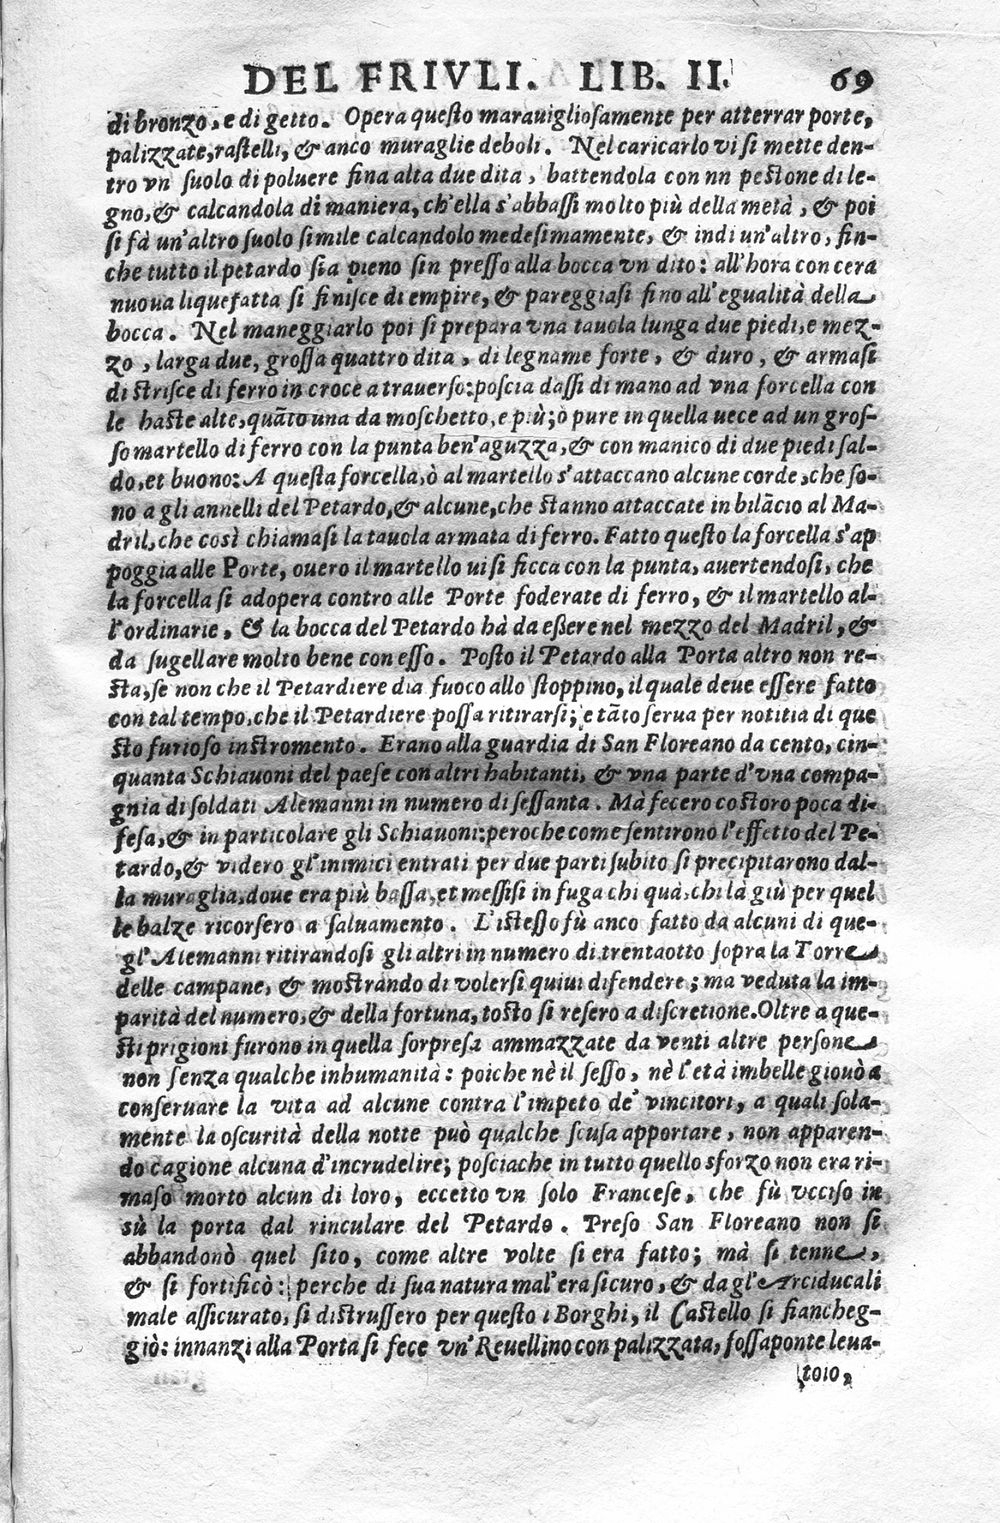 DEL FRIVLI. LIB. II. 69
di bronzo, e di getto. Opera questo marauigliosamente per atterrar porte,
palizzate, rastelli, & anco muraglie deboli. Nel caricarlo vi si mette den-
tro vn suolo di poluere fina alta due dita, battendola con nn pestone di le-
gno, & calcandola di maniera, ch'ella s'abbassi molto più della metà, & poi
si fà un'altro suolo simile calcandolo medesimamente, & indi un'altro, fin-
che tutto il petardo sia pieno sin presso alla bocca vn dito: all'hora con cera
nuoua liquefatta si finisce di empire, & pareggiasi fino all'egualità della
bocca. Nel maneggiarlo poi si prepara vna tauola lunga due piedi, e mez-
zo, larga due, grossa quattro dita, di legname forte, & duro, & armasi
di strisce di ferro in croce a trauerso: poscia dassi di mano ad vna forcella con
le haste alte, quãto una da moschetto, e più; ò pure in quella uece ad un gros-
so martello di ferro con la punta ben'aguzza, & con manico di due piedi sal-
do, et buono: A questa forcella, ò al martello s'attaccano alcune corde, che so-
no a gli annelli del Petardo, & alcune, che stanno attaccate in bilãcio al Ma-
dril, che così chiamasi la tauola armata di ferro. Fatto questo la forcella s'ap
poggia alle Porte, ouero il martello ui si ficca con la punta, auertendosi, che
la forcella si adopera contro alle Porte foderate di ferro, & il martello al-
l'ordinarie, & la bocca del Petardo hà da eßere nel mezzo del Madril, &
da sugellare molto bene con esso. Posto il Petardo alla Porta altro non re-
sta, se non che il Petardiere dia fuoco allo stoppino, il quale deue essere fatto
con tal tempo, che il Petardiere possa ritirarsi; e tãto serua per notitia di que
sto furioso instromento. Erano alla guardia di San Floreano da cento, cin-
quanta Schiauoni del paese con altri habitanti, & vna parte d'vna compa-
gnia di soldati Alemanni in numero di sessanta. Mà fecero costoro poca di-
fesa, & in particolare gli Schiauoni: peroche come sentirono l'effetto del Pe-
tardo, & videro gl'inimici entrati per due parti subito si precipitarono dal-
la muraglia, doue era più bassa, et messisi in fuga chi quà, chi là giù per quel
le balze ricorsero a saluamento. L'istesso fù anco fatto da alcuni di que-
gl'Alemanni ritirandosi gli altri in numero di trentaotto sopra la Torre
delle campane, & mostrando di volersi quiui difendere; ma veduta la im-
parità del numero, & della fortuna, tosto si resero a discretione. Oltre a que-
sti prigioni furono in quella sorpresa ammazzate da venti altre persone
non senza qualche inhumanità: poiche nè il sesso, nè l'età imbelle giouò a
conseruare la vita ad alcune contra l'impeto de' vincitori, a quali sola-
mente la oscurità della notte può qualche scusa apportare, non apparen-
do cagione alcuna d'incrudelire; posciache in tutto quello sforzo non era ri-
maso morto alcun di loro, eccetto vn solo Francese, che fù vcciso in
sù la porta dal rinculare del Petardo. Preso San Floreano non si
abbandonò quel sito, come altre volte si era fatto; mà si tenne,
& si fortificò: perche di sua natura mal'era sicuro, & da gl'Arciducali
male assicurato, si distrussero per questo i Borghi, il Castello si fiancheg-
giò: innanzi alla Porta si fece vn'Reuellino con palizzata, fossa ponte leua-
toio,